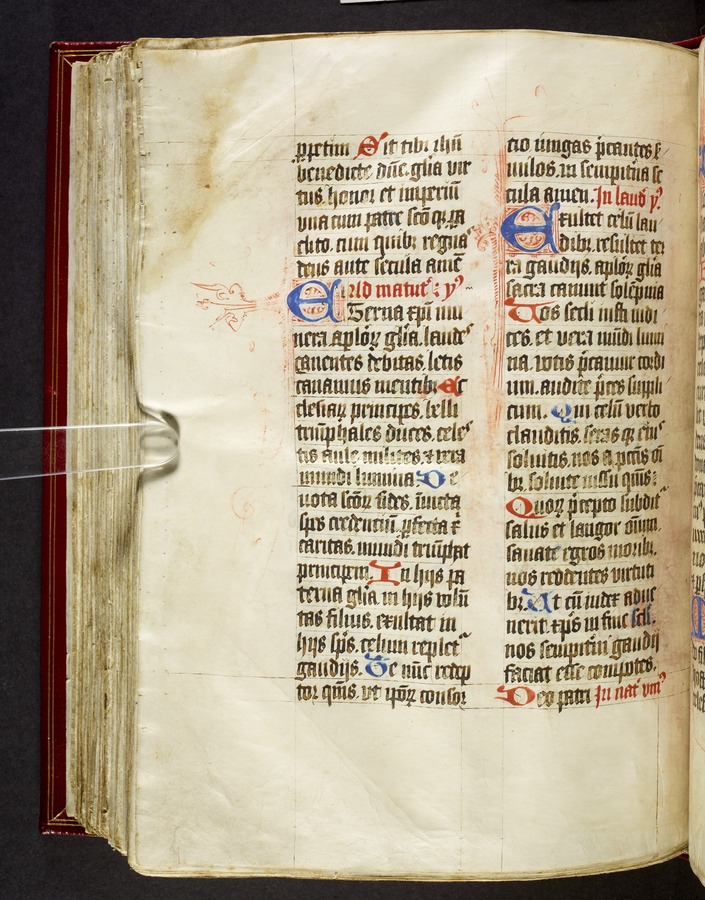 ppetim Sit tibi ihu
benedicte dne. glia vir
tus. honor et imperiu
vna cum patre sco qz pa
clito. cum quibz regna
deus ante secula ame
Ad matut' : y'
Eterna xpi mu
nera. aplorz glia. laudes
canentes debitas. letis
canamus mentibz Ec
clesiarz principes. belli
triuphales duces. celes
tis aule milites z vera
mundi lumina De
uota scorz fides. inuicta
spes credenciu. pfecta x
caritas. mundi triuphat
principem. In hijs pa
terna glia. in hijs volu
tas filius. exultat in
hijs sps. celum replet
gaudijs. Te nuc redep
tor qms. vt iporz consor
cio iungas pcantes
uulos. in sempitna se
cula amen. In laud' y'
Exultet celu lau
dibz. resultet ter
ra gaudijs. aplorz glia
sacra canunt solepnia
Vos secli iusti iudi
ces. et vera mudi lumi
na. votis pcamur cordi
um. audite pces suppli
cum. Qui celu verbo
clauditis. seras qz eius
soluitis. nos a pctis oi
bz. soluite iussu qms :
Quorz pcepto subdit'
salus et langor oium.
sanate egros moribz.
nos reddentes virtuti
bz. Ut cu iudex adue
nerit. xps in fine scli.
nos sempitni gaudij
faciat esse compotes.
Deo patri In nat' vni'